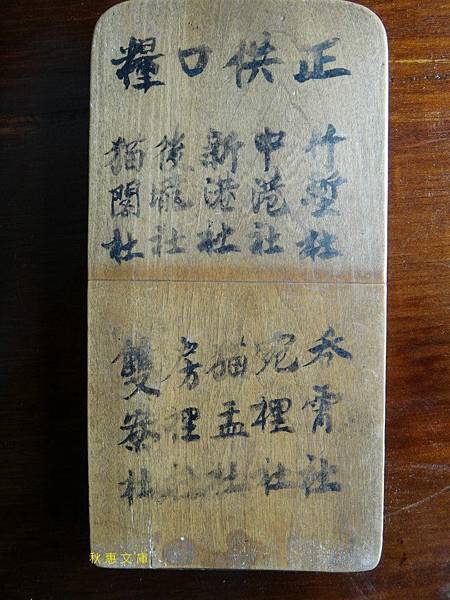 正供口糧
竹塹社
中港社
新港社
後壠社
猫閣社
吞霄社
宛裡社
猫盂社
房裡社
雙寮社
秋惠文庫